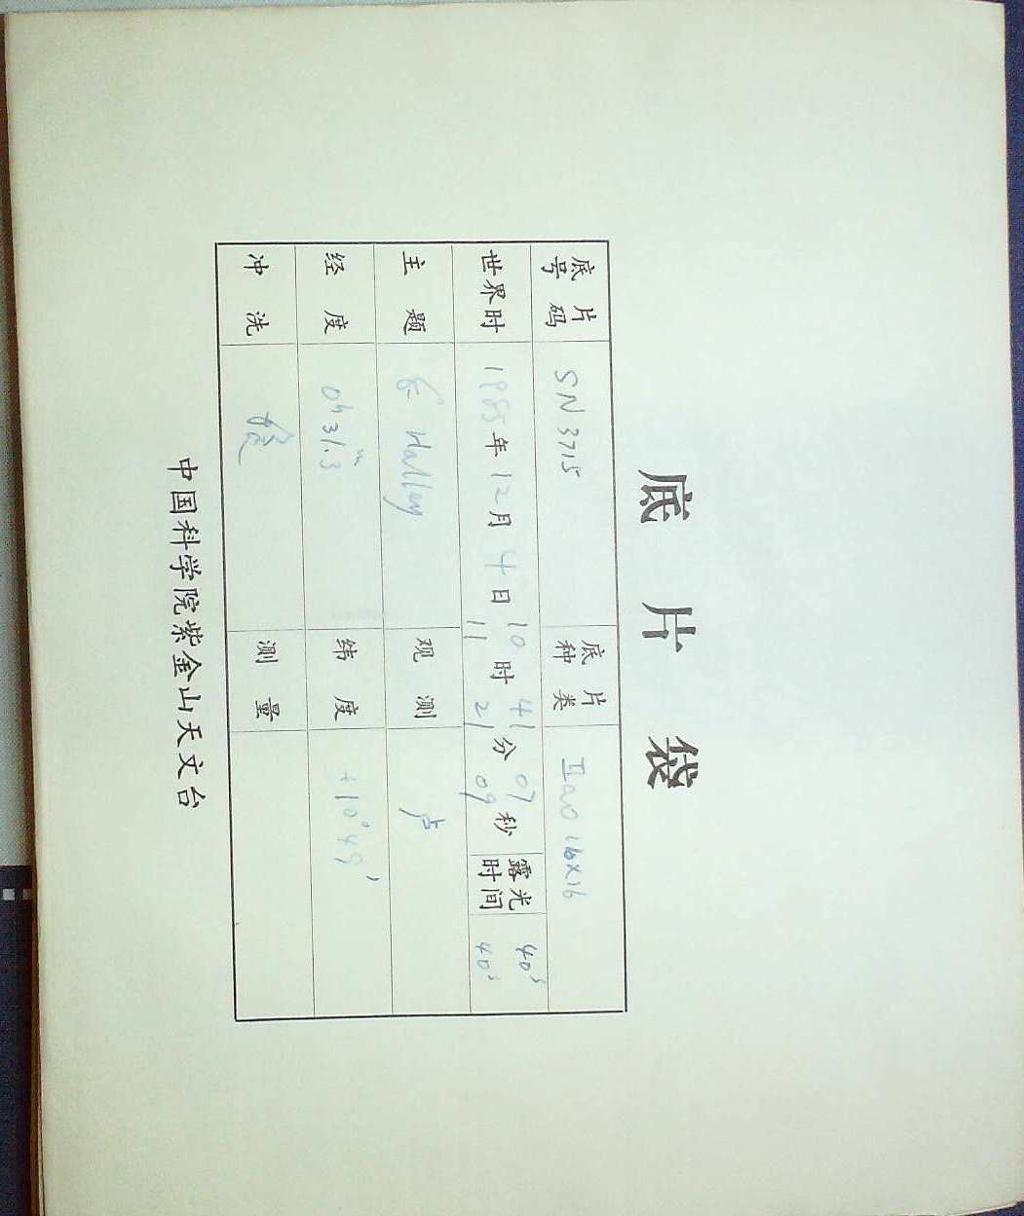 底 片 袋
底片号码 SN3715 底片种类 IIao 16×16
世界时 1985年12月4日10时41分07秒 露光时间 40s
11 21 09 40s
主题 Halley 观测 卢
经度 0h31.3m 纬度 +10°49'
冲洗 测量
中国科学院紫金山天文台